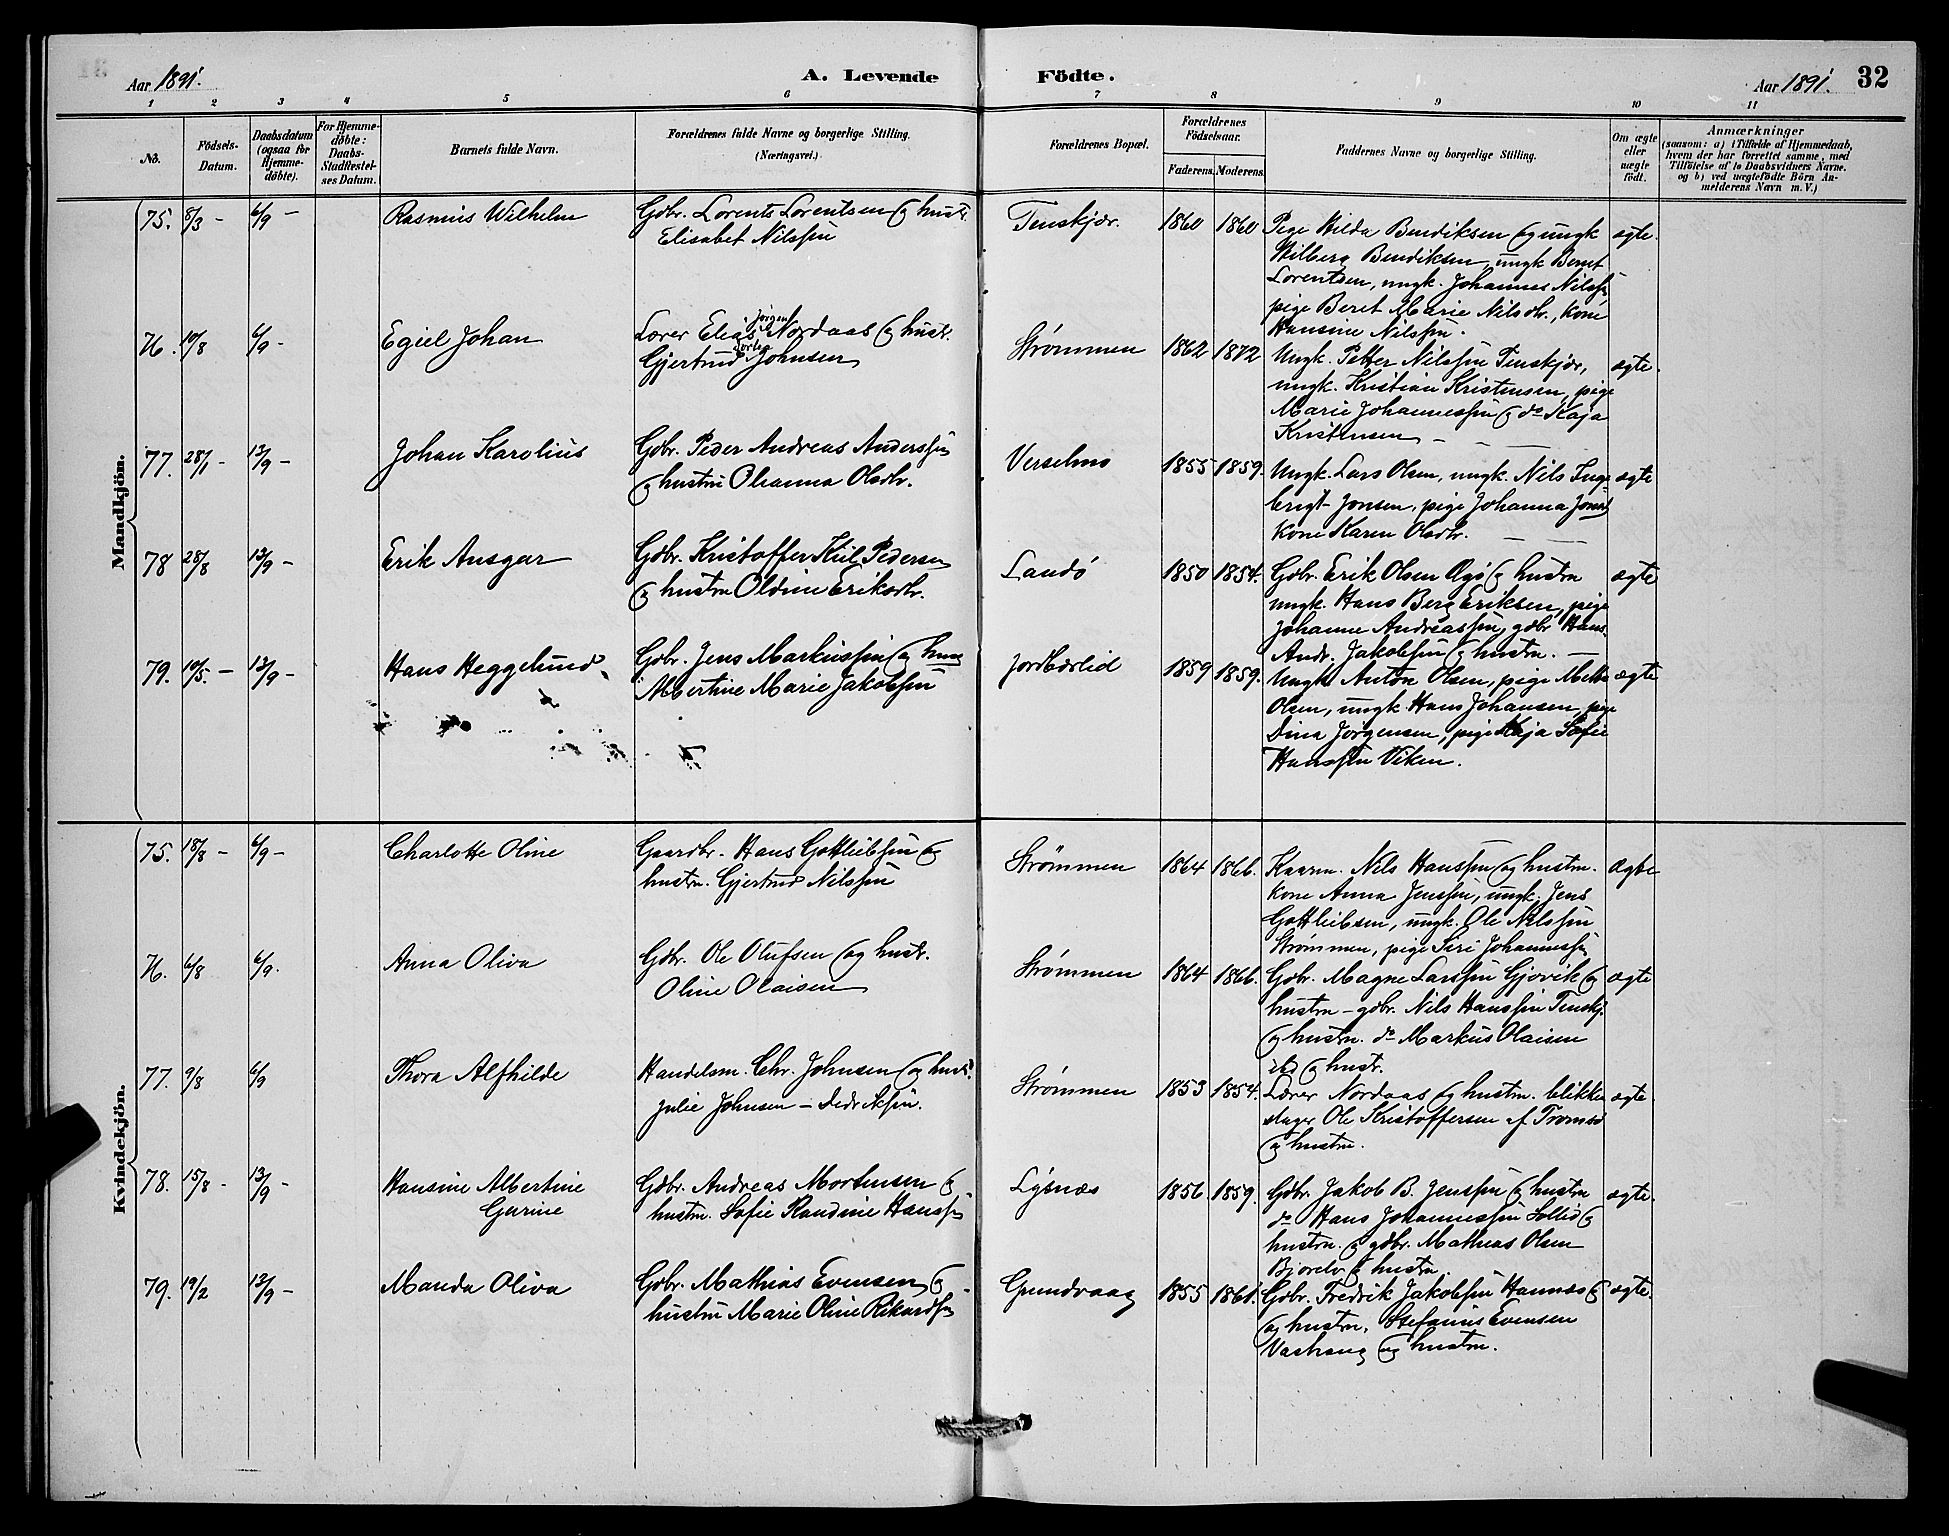 Aar 1891.
A. Levende
Födte.
Aar 1891.
32
1 2 3 4 5 6 7 8 9 10 11
No.
Födsels-
Datum.
Daabsdatum
(ogsaa for
Hjemme-
döbte).
For Hjemme-
döbte:
Daabs-
Stadfæstel-
ses Datum.
Barnets fulde Navn.
Forældrenes fulde Navne og borgerlige Stilling.
(Næringsvei.)
Forældrenes Bopæl.
Forældrenes
Födselsaar.
Faderens. Moderens.
Faddernes Navne og borgerlige Stilling.
Om ægte
eller
uægte
födt.
Anmærkninger
(saasom: a) i Tilfælde af Hjemmedaab,
hvem der har forrettet samme, med
Tilföielse af to Daabsvidners Navne.
og b) ved uægtefödte Börn An-
melderens Navn m. V.)
Mandkjön.
75. 8/3 - 6/9 - Rasmus Wilhelm
Gdbr. Lorents Lorentsen og hustr.
Elisabet Nilssen
Tenskjær. 1860 1860
Pige Hilda Bendiksen og ungk
Hilberg Bendiksen, ungk Bernt
Lorentsen, ungk. Johannes Nilss
pige Beret Marie Nilsdtr., kone
Hansine Nilssen.
ægte.
76. 10/8 6/9 - Egiel Johan
Jørgen
Lærer Elias Nordaas og hustr.
Dortea
Gjertrud Johnsen
Strømmen 1862 1872
Ungk. Petter Nilssen Tenskjær,
ungk. Kristian Kristensen, pige
Marie Johannessen og do Kaja
Kristensen
ægte.
77. 28/1 - 13/9 - Johan Karolius
Gdbr. Peder Andreas Anderssen
og hustru Olianna Olsdtr.
Verselmo 1855 1859.
Ungk. Lars Olsen, ungk. Nils Inge
brigt Jonsen, pige Johanna Jonsd
kone Karen Olsdtr.
ægte
78 28/8 13/9 - Erik Ansgar
Gdbr. Kristoffer Kiil Pedersen
og hustru Oldine Eriksdtr.
Sandö 1850 1854.
Gdbr. Erik Olsen og hustru
ungk. Hans Berg Eriksen, pige
Johanne Andreassen, gdbr Hans
Andr. Jakobsen og hustru.
ægte
79. 10/5. - 13/9 - Hans Heggelund
Gdbr. Jens Markussen og hustr
Albertine Marie Jakobsen
Jordbærlid 1859 1859.
Ungk Anton Olsen, pige Mette
Olsen, ungk. Hans Johansen, pige
Dina Jørgensen, pige Kaja Sofie
Hanssen Viken.
ægte
Kvindekjön.
75. 18/8 - 6/9 - Charlotte Oline
Gaardbr. Hans Gottliebsen og
hustru. Gjertrud Nilssen
Strømmen 1864 1866.
Kaarm. Nils Hanssen og hustru.
kone Anna Jenssen, ungk. Jens
Gottliebsen, ungk. Ole Nilssen
Strømmen, pige Siri Johannessen
ægte
76. 6/8 6/9. Anna Oliva
Gdbr. Ole Olufsen og hustr.
Oline Olaisen
Strømmen 1864 1866.
Gdbr. Magne Larssen Gjovik og
hustru - gdbr. Nils Hanssen Tenskj.
og hustru. do Markus Olaisen
ibd og hustr.
ægte
77. 9/8 6/9 Thora Alfhilde
Handelsm. Chr. Johnsen og hustr.
Julie Johnsen - Dedriksen.
Strømmen 1853 1854.
Lærer Nordaas og hustru. blikken
slager Ole Kristoffersen af Tromsö
og hustru.
ægte.
78. 15/8 - 13/9 - Hansine Albertine
Gurine
Gdbr. Andreas Mortensen og
hustru. Sofie Randine Hanss
Lysnæs 1856. 1859.
Gdbr. Jakob B. Jenssen og hustru
do Hans Johannessen Sollid og
hustru. og gdbr. Mathias Olsen
Bjorelv og hustru.
ægte.
79. 19/2 13/9 - Mareda Oliva
Gdbr. Mathias Evensen og
hustru Marie Oline Rikardsen
Grundvaag 1855 1861.
Gdbr. Fredrik Jakobsen Hamnæs og
og hustru. Stefanus Evensen
og hustru.
ægte.